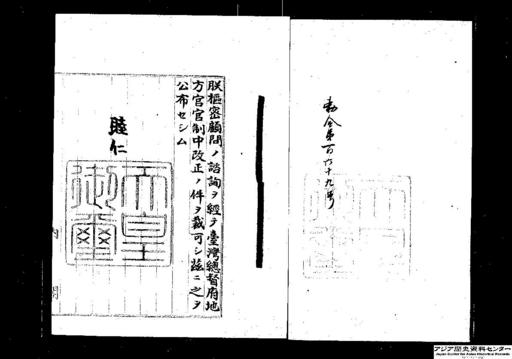 勅令第百六十九号
朕樞密顧問ノ諮詢ヲ經テ臺灣總督府地
方官官制中改正ノ件ヲ裁可シ茲ニ之ヲ
公布セシム
睦仁
天皇
御璽
内閣
アジア歴史資料センター
Japan Center for Asian Historical Records